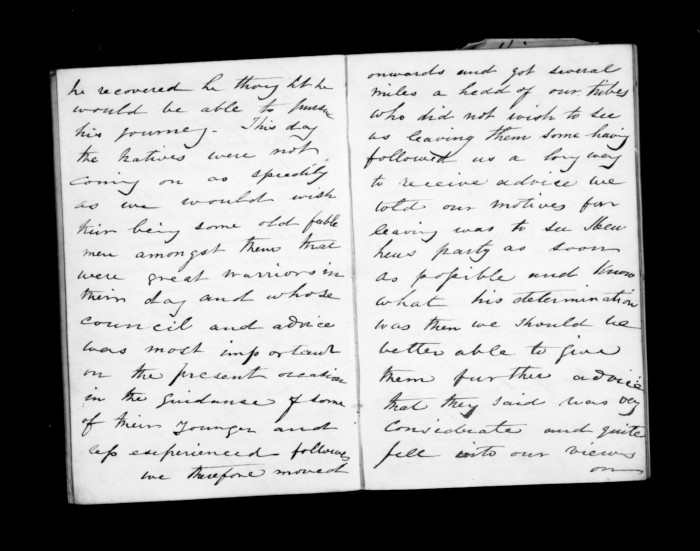 he recovered he thought he
would be able to pursue
his journey. This day
the Natives were not
coming on as speedily
as we would wish
their being some old feble
men amongst them that
were great warriors in
their day and whose
council and advice
was most important
on the present occasion
in the guidanse of some
of their younger and
less experienced followers
we therefore moved
onwards and got several
miles a hedd of our tribes
who did not wish to see
us leaving them some having
followed us a long way
to receive advice we
told our motives for
leaving was to see
party as soon
as possible and know
what his determination
was then we should be
better able to give
them further advice
that they said was very
considerate and quite
fell into our views
on